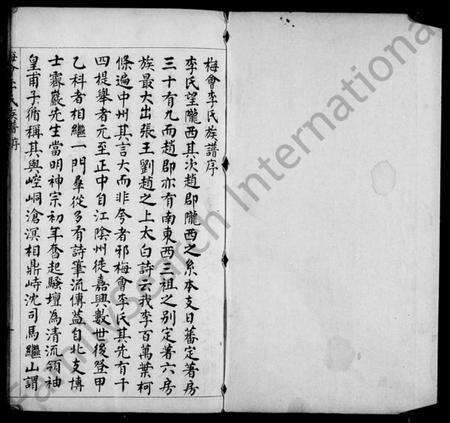 梅會李氏族譜序
李氏望隴西其次趙郡隴西之系本支日蕃定著房
三十有九而趙郡亦有南東西三祖之别定著六房
族最大出張王劉趙之上太白詩云我李百萬葉柯
條遍中州其言大而非夸者邪梅會李氏其先有千
四提舉者元至正中自江陰州徙嘉興數世後登甲
乙科者相繼一門羣從多有詩筆流傳蓋自北支博
士霽巖先生當明神宗初年奮起騷壇為清流領袖
皇甫子循稱其與崆峒滄溟相鼎峙沈司馬繼山謂
FamilySearch International